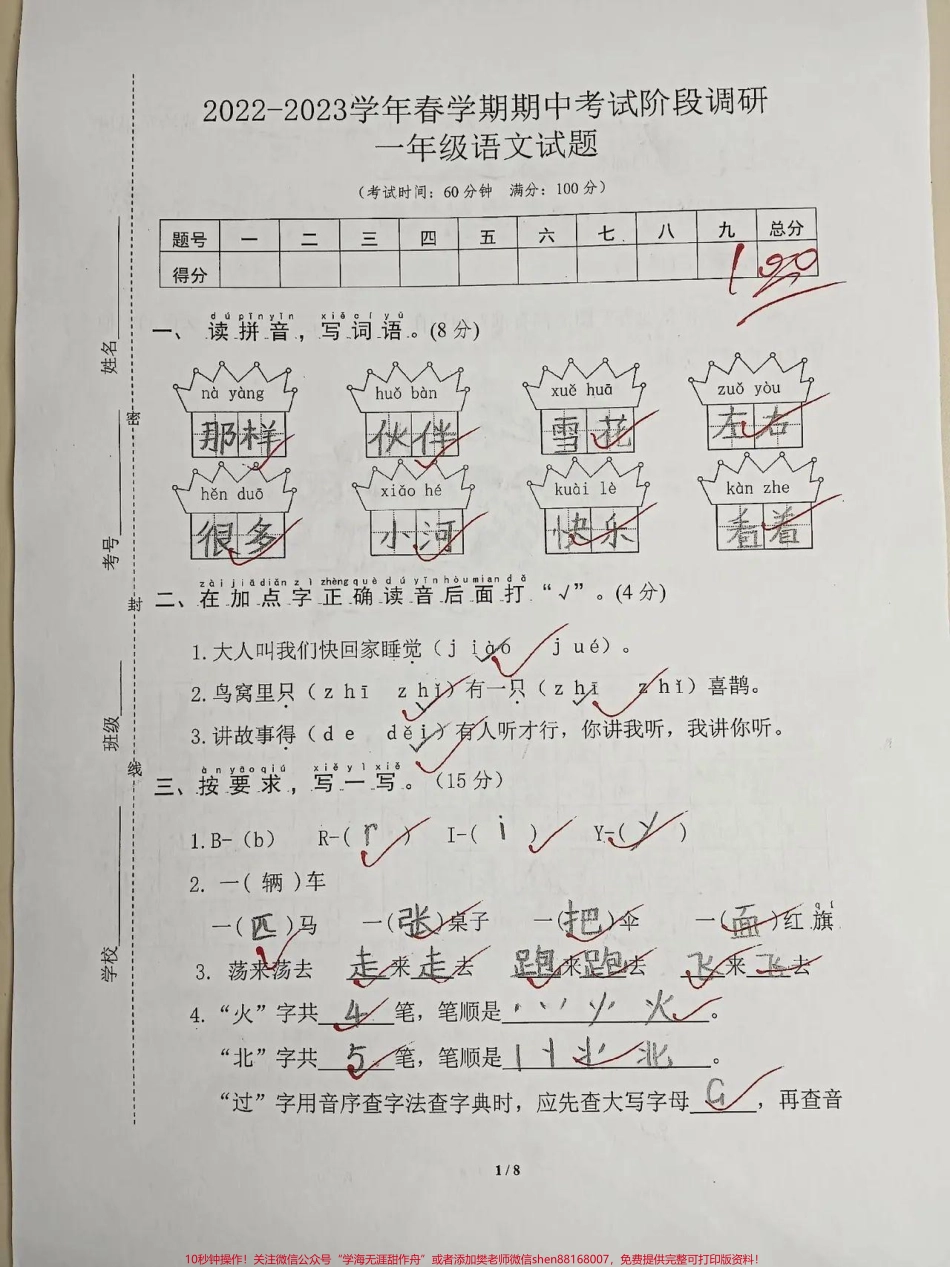 2022-2023学年春学期期中考试阶段调研
一年级语文试题
（考试时间：60分钟 满分：100分）
题号 一 二 三 四 五 六 七 八 九 总分
得分 100
dú pīn yīn xiě cí yǔ
一、读拼音，写词语。(8分)
nà yàng huǒ bàn xuě huā zuǒ yòu
那样 伙伴 雪花 左右
hěn duō xiǎo hé kuài lè kàn zhe
很多 小河 快乐 看着
zài jiā diǎn zì zhèng què dú yīn hòu mian dǎ
二、在加点字正确读音后面打“√”。(4分)
1.大人叫我们快回家睡觉（jiào√ jué）。
2.鸟窝里只（zhī zhǐ√）有一只（zhī√ zhǐ）喜鹊。
3.讲故事得（de děi√）有人听才行，你讲我听，我讲你听。
àn yāo qiú xiě yì xiě
三、按要求，写一写。（15分）
1.B-（b） R-( r ) I-( i ) Y-( y )
2. 一( 辆 )车
一( 匹 )马 一( 张 )桌子 一( 把 )伞 一( 面 )红旗
qí
3. 荡来荡去 走来走去 跑来跑去 飞来飞去
4.“火”字共 4 笔，笔顺是 丶 丷 少 火 。
“北”字共 5 笔，笔顺是 丨 北 。
“过”字用音序查字法查字典时，应先查大写字母 G ，再查音
姓名
考号
班级
学校
密
封
线
1 / 8
10秒钟操作！关注微信公众号“学海无涯甜作舟”或者添加樊老师微信shen88168007，免费提供完整可打印版资料！